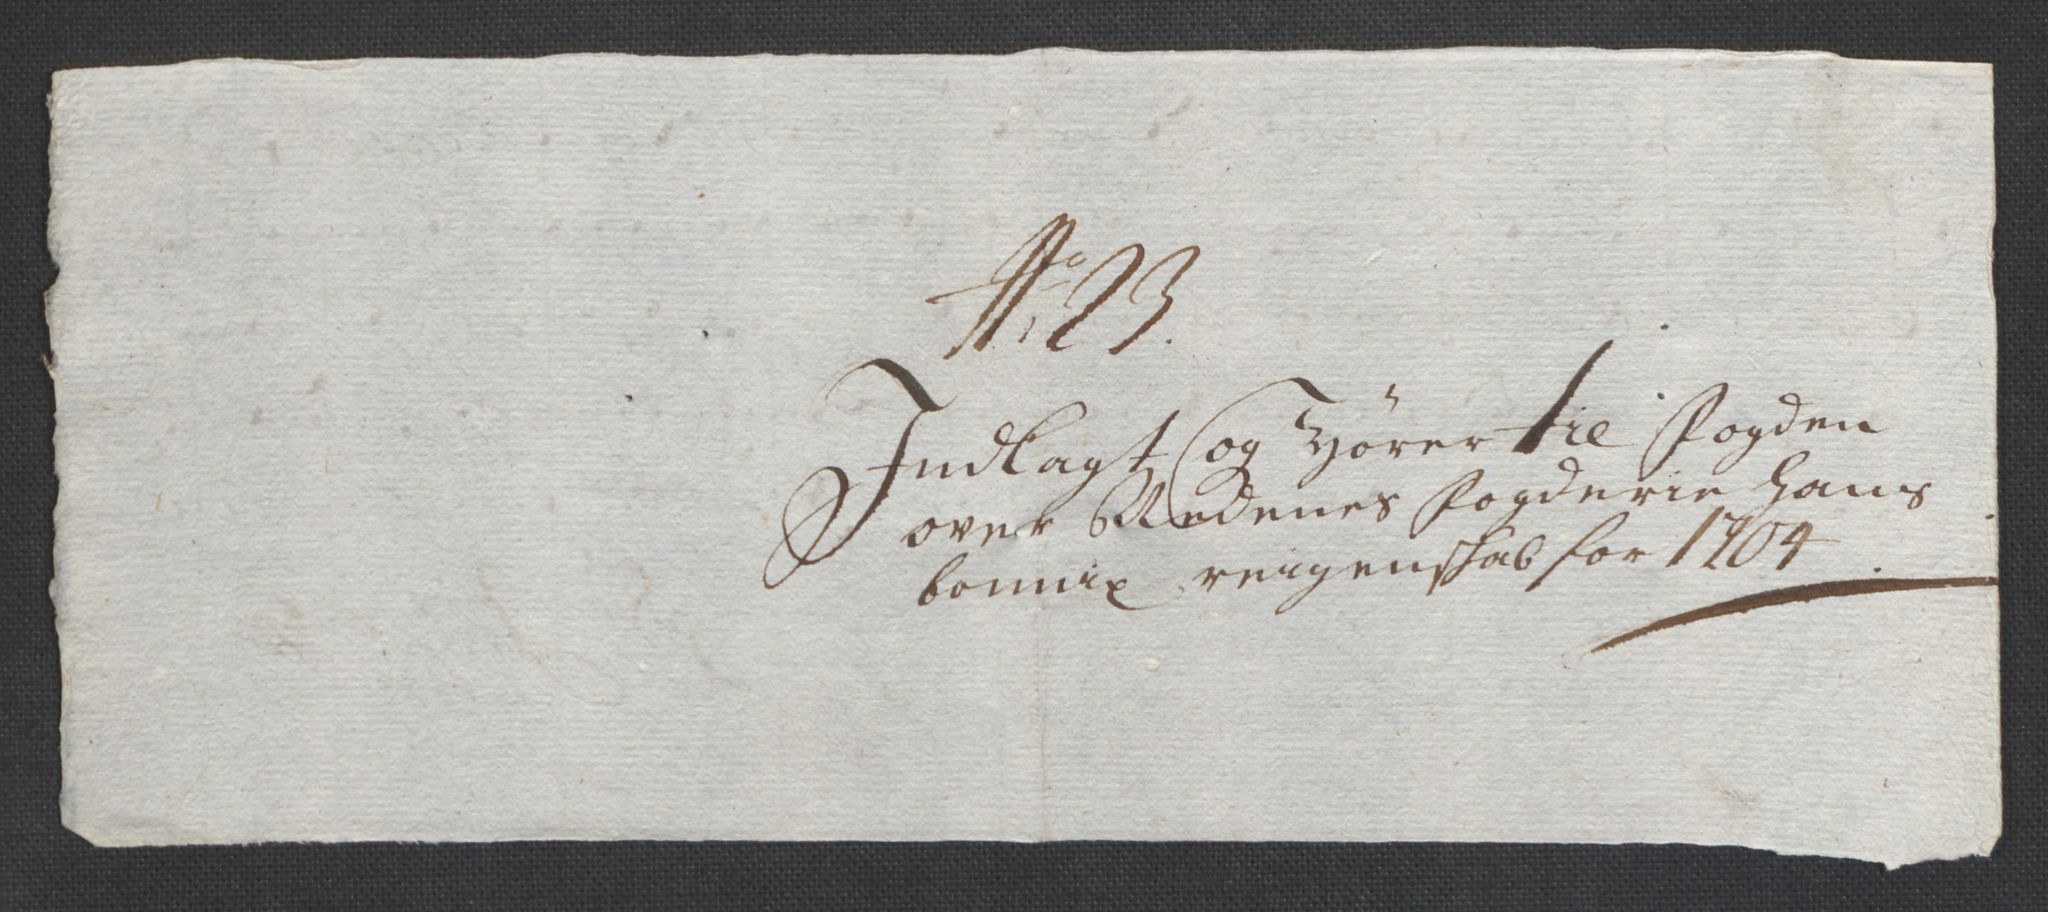 No 23.
Indlagt og Hører til Fogden
over Nedenes Fogderie Hans
bonnix reigenskab for 1704